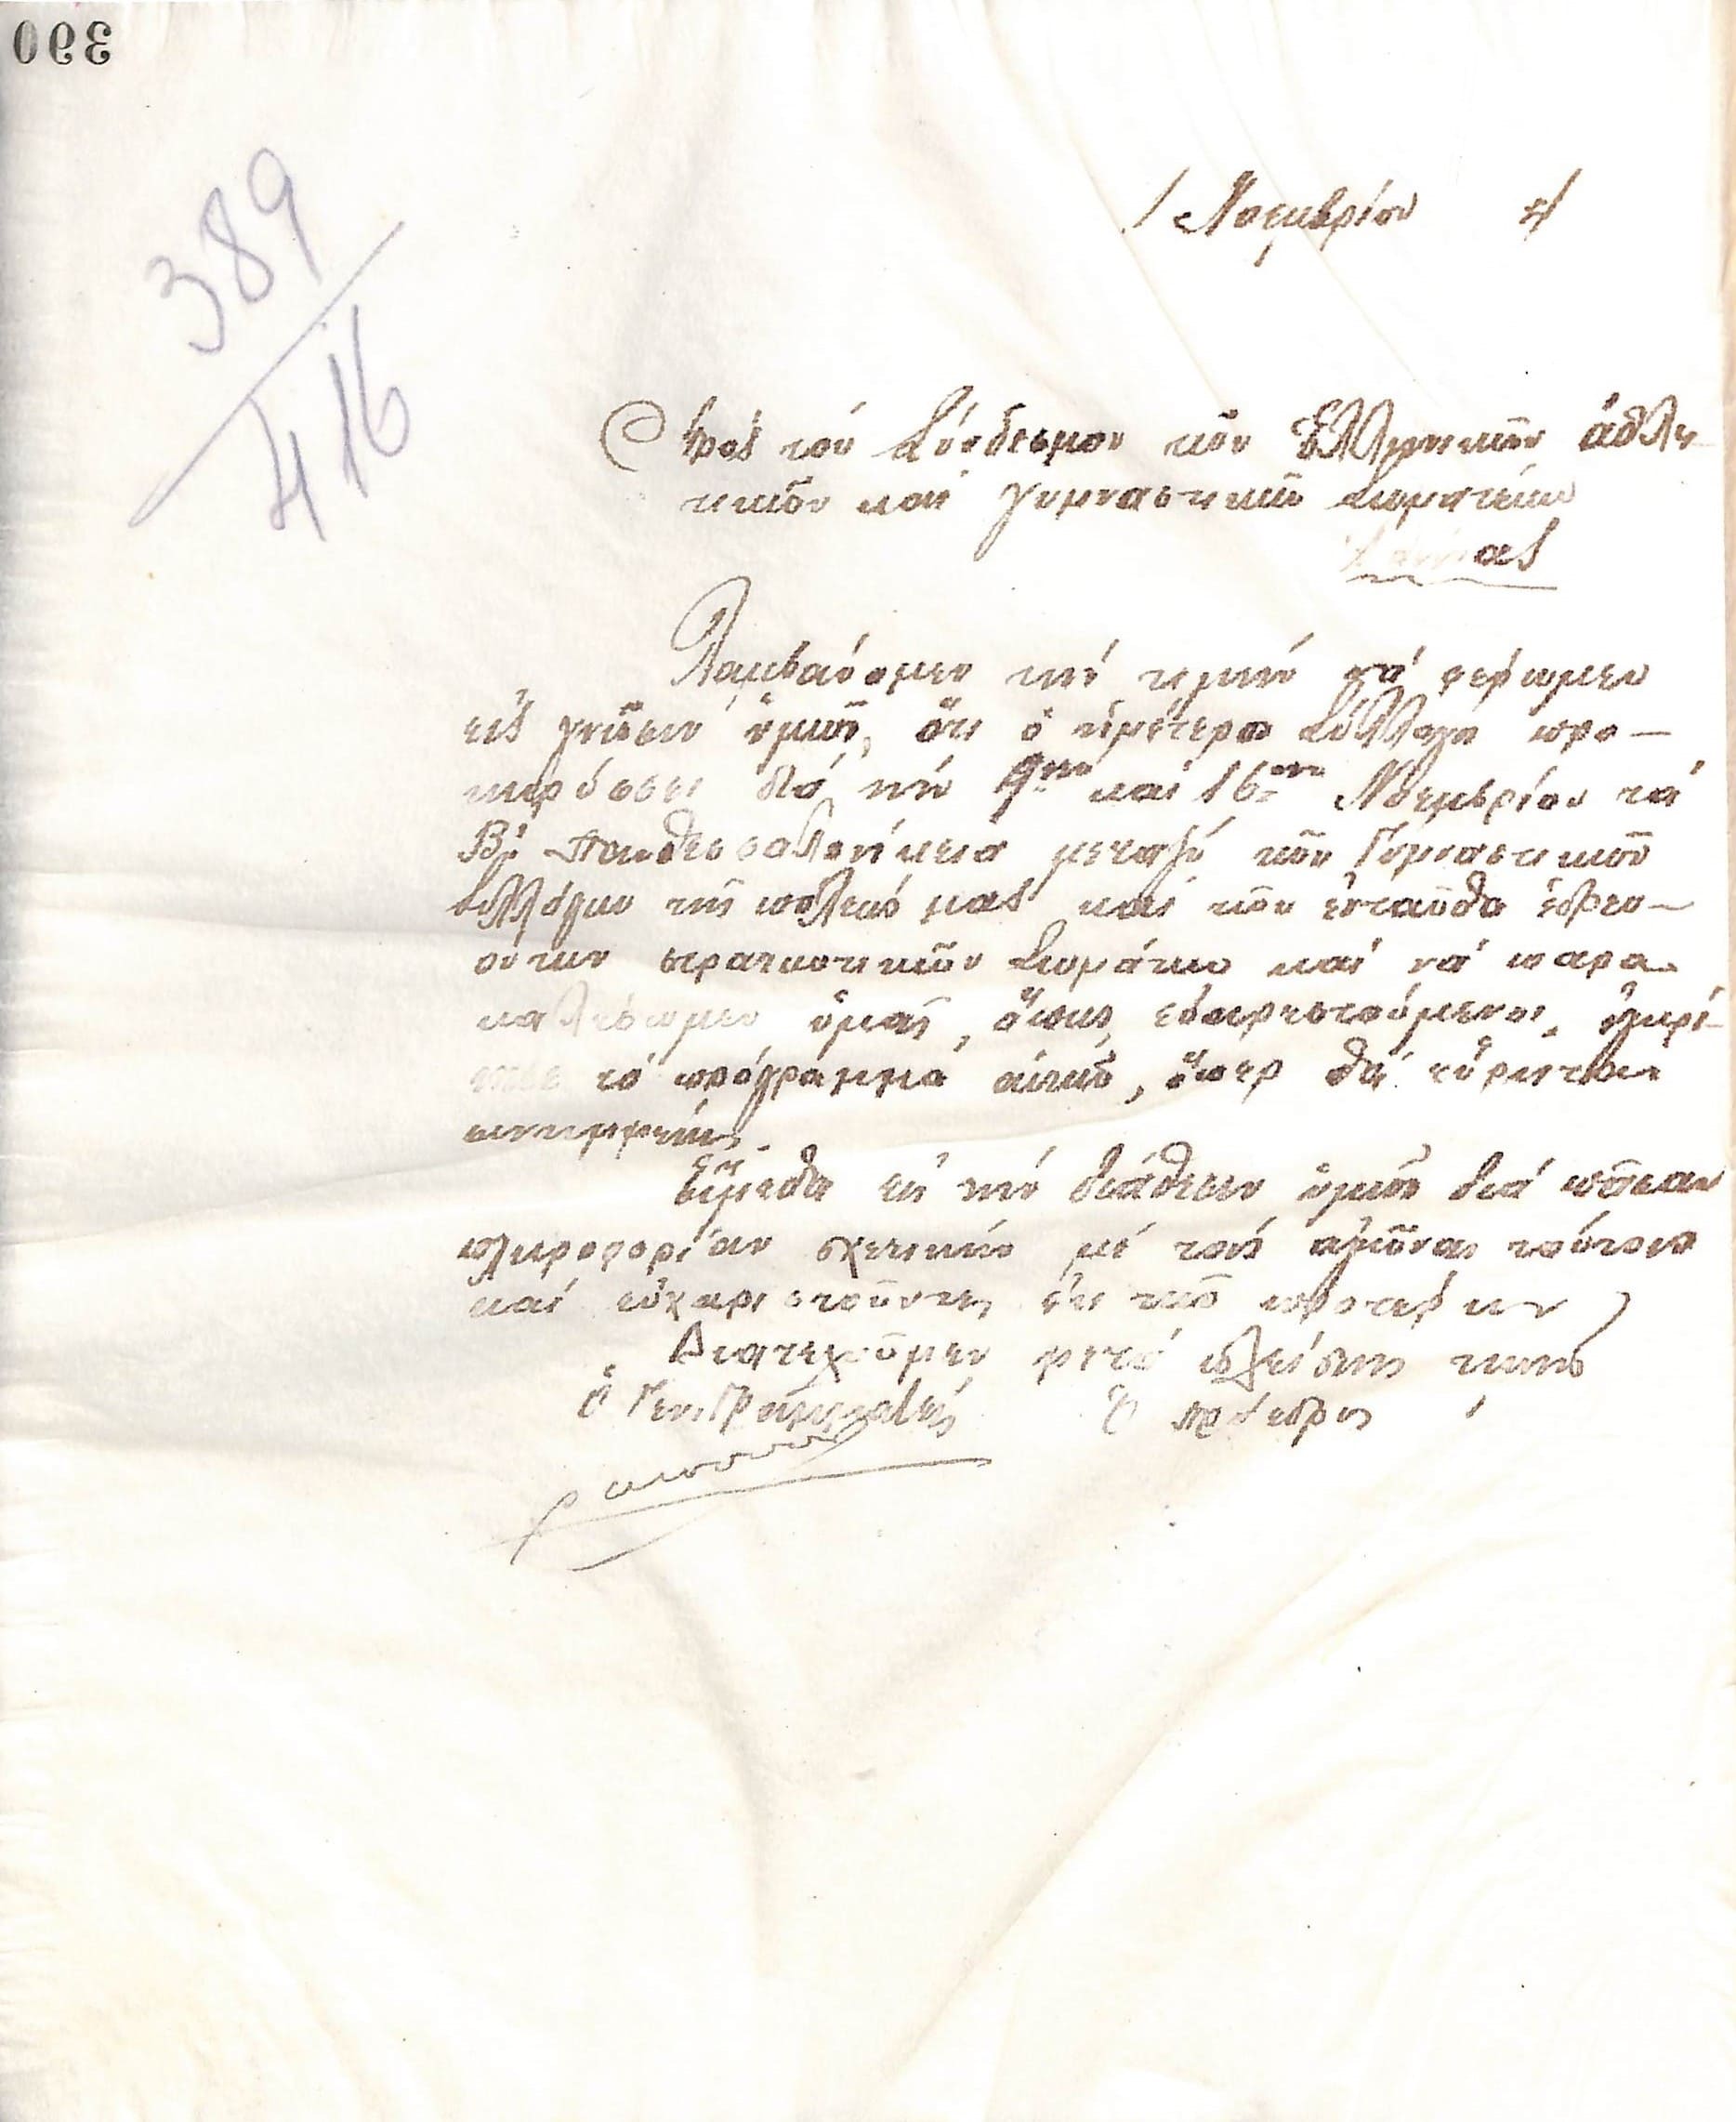 390
389
416
1 Νοεμβρίου
Πρός τόν Σύνδεσμον τῶν Ἑλληνικῶν ἀθλη-
τικῶν καί γυμναστικῶν Σωματείων
Λαμβάνομεν τήν τιμήν νά φέρωμεν
εἰς γνῶσιν ὑμῶν, ὅτι ὁ ἡμέτερος Σύλλογος προ-
κηρύσσει διά τήν 9ην καί 16ην Νοεμβρίου τά
Β! Πανθεσσαλονίκεια μεταξύ τῶν Γυμναστικῶν
Συλλόγων τῆς πόλεώς μας καί τῶν ἐνταῦθα ἑδρευ-
όντων στρατιωτικῶν Σωμάτων καί νά παρα-
καλέσωμεν ὑμᾶς, ὅπως, εὐαρεστούμενοι, ἐγκρί-
νητε τό πρόγραμμα αὐτῶν, ὅπερ θά εὕρητε
συνημμένως.
Εἴμεθα εἰς τήν διάθεσιν ὑμῶν διά πᾶσαν
πληροφορίαν σχετικήν μέ τούς ἀγῶνας τούτους
καί εὐχαριστοῦντες ἐκ τῶν προτέρων
Διατελοῦμεν μετά πλείστης τιμῆς
Ὁ Γεν. Γραμματεύς Ὁ Πρόεδρος